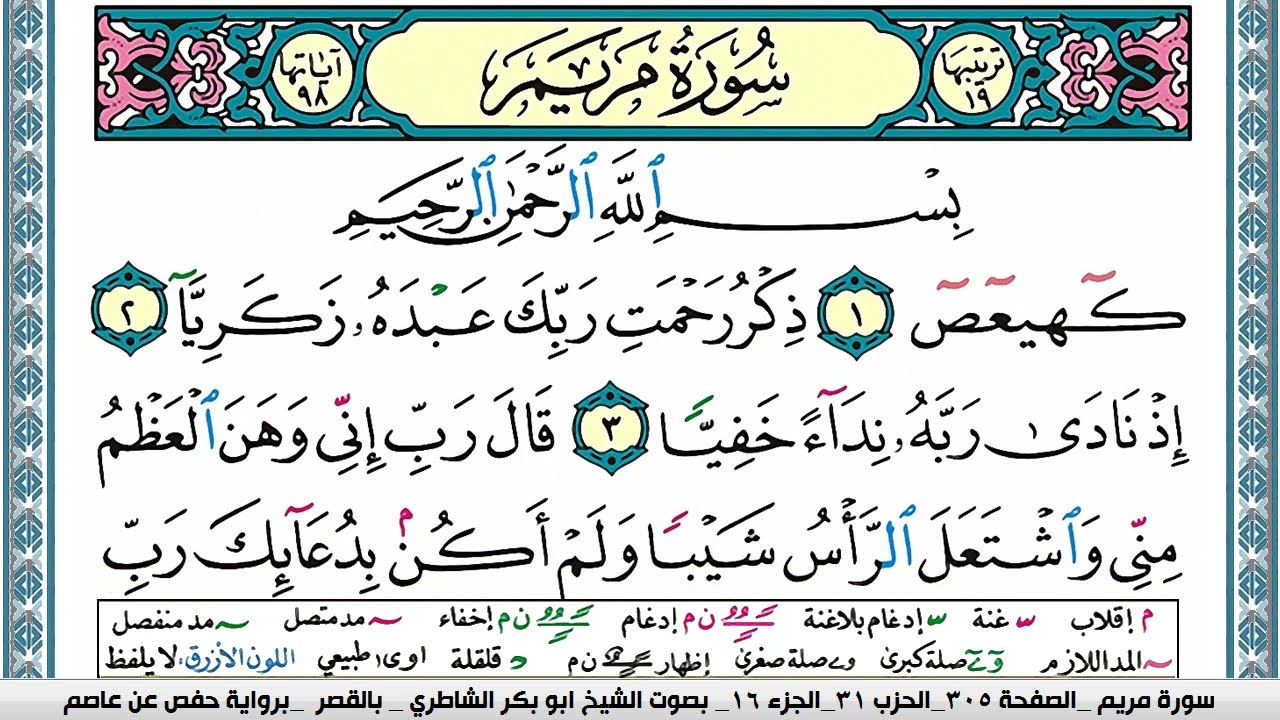 ترتيبها ١٩
سُورَةُ مَرْيَمَ
آيَاتُها ٩٨
بِسْمِ ٱللَّهِ ٱلرَّحْمَٰنِ ٱلرَّحِيمِ
كٓهيعٓصٓ ١ ذِكْرُ رَحْمَتِ رَبِّكَ عَبْدَهُۥ زَكَرِيَّآ ٢
إِذْ نَادَىٰ رَبَّهُۥ نِدَآءً خَفِيًّا ٣ قَالَ رَبِّ إِنِّى وَهَنَ ٱلْعَظْمُ
مِنِّى وَٱشْتَعَلَ ٱلرَّأْسُ شَيْبًا وَلَمْ أَكُنۢ بِدُعَآئِكَ رَبِّ
م إقلاب ~ غنة ~ إدغام بلاغنة ن م إدغام ن م إخفاء ~ مد متصل ~ مد منفصل
~ المد اللازم صلة كبرى صلة صغرى إظهار ن م قلقلة اوى طبيعي اللون الأزرق: لا يلفظ
سورة مريم _الصفحة ٣٠٥_الحزب ٣١_الجزء ١٦_ بصوت الشيخ ابو بكر الشاطري _ بالقصر _برواية حفص عن عاصم